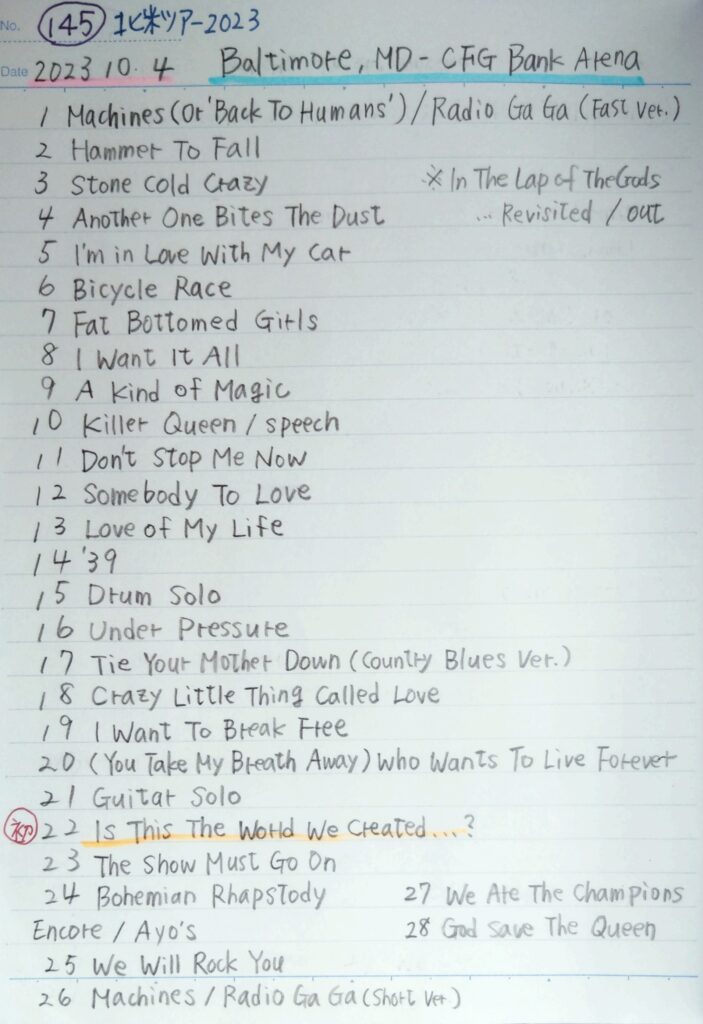 No. 145 北米ツアー2023
Date 2023 10. 4 Baltimore, MD - CFG Bank Arena
1 Machines (Or 'Back To Humans') / Radio Ga Ga (Fast Ver.)
2 Hammer To Fall
3 Stone Cold Crazy ※ In The Lap of The Gods
4 Another One Bites The Dust ... Revisited / out
5 I'm in Love With My Car
6 Bicycle Race
7 Fat Bottomed Girls
8 I Want It All
9 A Kind of Magic
10 Killer Queen / speech
11 Don't Stop Me Now
12 Somebody To Love
13 Love of My Life
14 '39
15 Drum Solo
16 Under Pressure
17 Tie Your Mother Down (Country Blues Ver.)
18 Crazy Little Thing Called Love
19 I Want To Break Free
20 (You Take My Breath Away) Who Wants To Live Forever
21 Guitar Solo
初 22 Is This The World We Created...?
23 The Show Must Go On
24 Bohemian Rhapstody 27 We Are The Champions
Encore / Ayo's 28 God Save The Queen
25 We Will Rock You
26 Machines / Radio Ga Ga (Short Ver.)